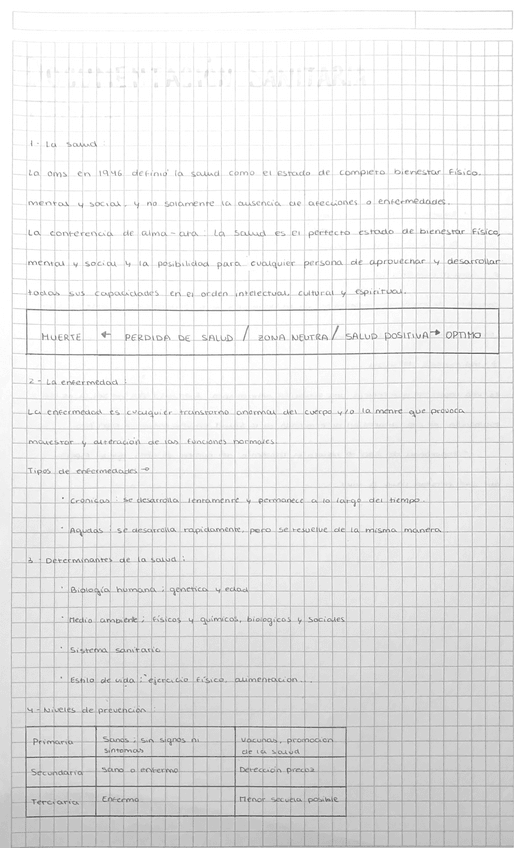 1- La salud :
La oms en 1946 definió la salud como el estado de completo bienestar físico,
mental y social, y no solamente la ausencia de afecciones o enfermedades.
La conferencia de alma-ata: La salud es el perfecto estado de bienestar físico,
mental y social y la posibilidad para cualquier persona de aprovechar y desarrollar
todas sus capacidades en el orden intelectual, cultural y espiritual.
MUERTE ← PERDIDA DE SALUD / ZONA NEUTRA / SALUD POSITIVA → OPTIMO
2- La enfermedad :
La enfermedad es cualquier transtorno anormal del cuerpo y/o la mente que provoca
malestar y alteración de las funciones normales
Tipos de enfermedades →
· Crónicas : se desarrolla lentamente y permanece a lo largo del tiempo.
· Agudas : se desarrolla rapidamente, pero se resuelve de la misma manera
3- Determinantes de la salud :
· Biología humana ; genetica y edad
· Medio ambiente ; físicos y químicos, biologicos y sociales
· Sistema sanitario
· Estilo de vida : ejercicio físico, alimentación...
4- Niveles de prevención :
Primaria Sanos ; sin signos ni síntomas Vacunas, promoción de la salud
Secundaria Sano o enfermo Detección precoz
Terciaria Enfermo Menor secuela posible